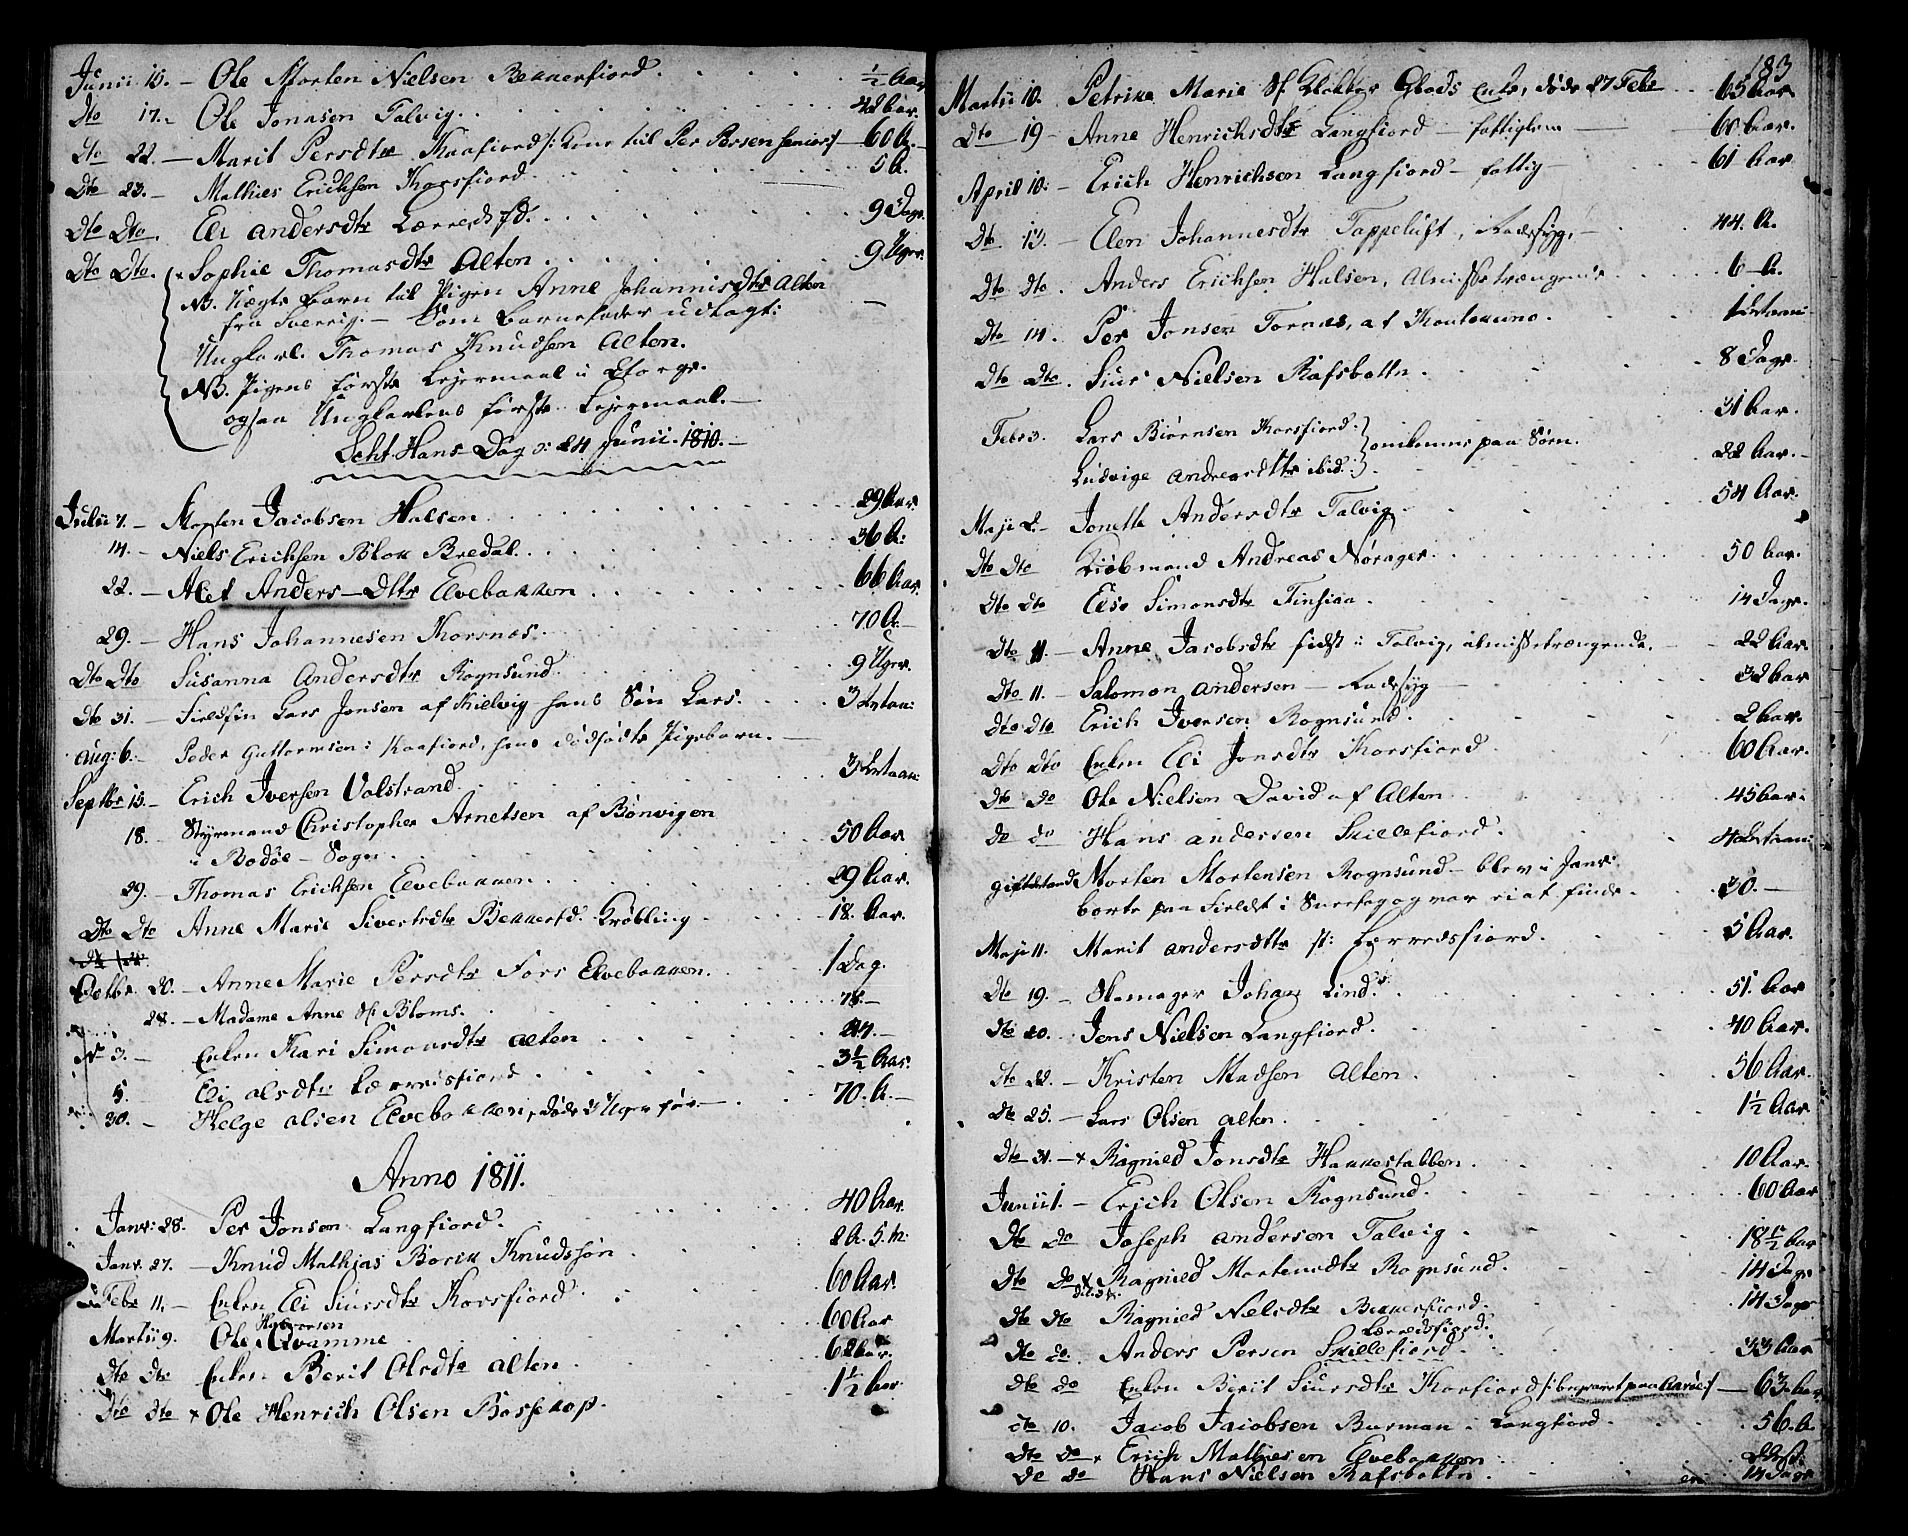 Junii 15. – Ole Morten Nielsen Bekkerfiord. ½ Aar
Dto 17. – Ole Jonasen Talvig. 42 Aar.
Dto 22. – Marit Persdtr Kaafiord /: Kone til Per Persen senior :/ – 60 A.
Dto 23. – Mathies Erichsen Korsfiord. 5 A.
Dto Dto. Eli Andersdtr Lerredsfd. 9 Dage.
Dto Dto. × Sophie Thomasdtr Alten. 9 Uger.
NB. Uægte Barn til Pigen Anne Johannisdtr Alten
fra Sverrig. – Som Barnefader udlagt:
Ungkarl. Thomas Knudsen Alten.
NB. Pigens første Lejermaal i Norge.
ogsaa Ungkarlens første Lejermaal. –
Scht Hans Dag d: 24 Junii. 1810. –
Julii 7. – Morten Jacobsen Halsen. 29 Aar.
14. – Niels Erichsen Blok Bredal. 36 A:
22. – Alet Anders-Dttr Elvebakken. 66 Aar.
29. – Hans Johannesen Korsnæs. 70 A. –
Dto Dto Susanna Andersdtr Rognsund. 9 Uger.
Dto 31. – Fieldfin Lars Jonsen af Kielvig hans Søn Lars. 3 Dage:
Aug: 6. – Peder Guttormsen i Kaafiord, hans dødfødte Pigebarn. –
Septbr 15. – Erich Iversen Valstrand.
18. Styrmand Christopher Arnetsen af Bønvigen
i Bodøe – Sogn. 50 Aar.
29. – Thomas Erichsen Elvebakken. 29 Aar.
Dto Dto Anne Marie Sivertsdtr Bekkerfd. Krøbling 18. Aar.
Octbr. 20. – Anne Marie Persdtr Fors Elvebakken. 1 Dag.
28. – Madame Anne Sl. Bloms. 78. –
3. – Enken Kari Simonsdtr Alten 84. –
5. Eli Olsdtr Lerresfiord 3½ Aar.
30. – Helge Olsen Elvebakken, døde 3 Uger før – 70. A. –
Anno 1811.
Janr: 28. Per Jonsen Langfiord. 40 Aar.
Janr. 27. – Knud Mathias Borck Knudssøn 2 A. 5. M:
Febr 11. – Enken Eli Siursdtr Korsfiord. 60 Aar.
Halvorsen
Martii 9. Ole Qvamme 60 Aar
Dto Dto Enken Berit Olsdtr Alten 62 Aar.
Dto Dto × Ole Henrich Olsen Bossekop. 1½ Aar
183
Martii 10. Petrike Marie Sl. Klokker Glods Enke, døde 27 Febr 65 Aar
Dto 19 – Anne Henrichsdtr Langfiord – fattiglem – 60 Aar.
April 10. – Erich Henrichsen Langfiord – fattig – 61 Aar
Dto. 13. – Elen Johannesdtr Tappeluft, Radesyg. – 44. A.
Dto Dto. Anders Erichsen Halsen, Almissetrængende 6 – A.
Dto 14. Per Jonsen Tornes, af Koutokeino.
Dto Dto. Siur Nielsen Rafsbottn. 8 Dage.
Febr 3. Lars Biørnsen Korsfiord. } omkomne paa Søen. 31 Aar.
Ludvige Andreasdttr ibid: } 22 Aar. –
Maji 2. – Jonette Andersdtr Talvig 54 Aar.
Dto Dto Kiøbmand Andreas Nørager. 50 Aar.
Dto Dto Else Simonsdtr Finsiaa. 14 Dage.
Dto 11 – Anne Jacobsdtr sidst i Talvig, almissetrængende. 22 Aar.
Dto 11. – Salomon Andersen – Radesyg 32 Aar
Dto Dto Erich Iversen Rognsund. 2 Aar.
Dto Dto Enken Eli Jonsdtr Korsfiord 60 Aar.
Dto Do Ole Nielsen David af Alten 45 Aar.
Do do Hans Andersen Skillefiord.
Giftestand Morten Mortensen Rognsund – blev i Janr:
borte paa Field i Sneefog og var ei at finde. 30. –
Maji 11. Marit Andersdttr Lerredsfiord. 5 Aar.
Dto 19. – Skomager Johan Lind. 51. Aar
Dto 20. Jens Nielsen Langfiord. 40 Aar.
Dto 22. – Kristen Madsen Alten 56 Aar.
Dto 25. – Lars Olsen Alten. 1½ Aar.
Dto 31. – × Ragnild Jonsdtr Hakkestabben. 10 Aar.
Junii 1. – Erich Olsen Rognsund. 60 Aar
Dto Do Joseph Andersen Talvig 18½ Aar
Dto Do × Ragnild Mortensdtr Rognsund. 14 Dage
Dto Dto Ragnild Nielsdtr Bekkerfiord. 14 Dage
Lerredsfiord.
Dto do. Anders Persen Skillefiord. 33 Aar
Dto do Enken Berit Siursdtr Korsfiord /: begravet paa Aarøe :/ – 63. Aar
dto 10. Jacob Jacobsen Burman i Langfiord 56. A
Dto do. Erich Mathiesen Elvebakken
Do do Hans Nielsen Rafsbottn 14 Dage